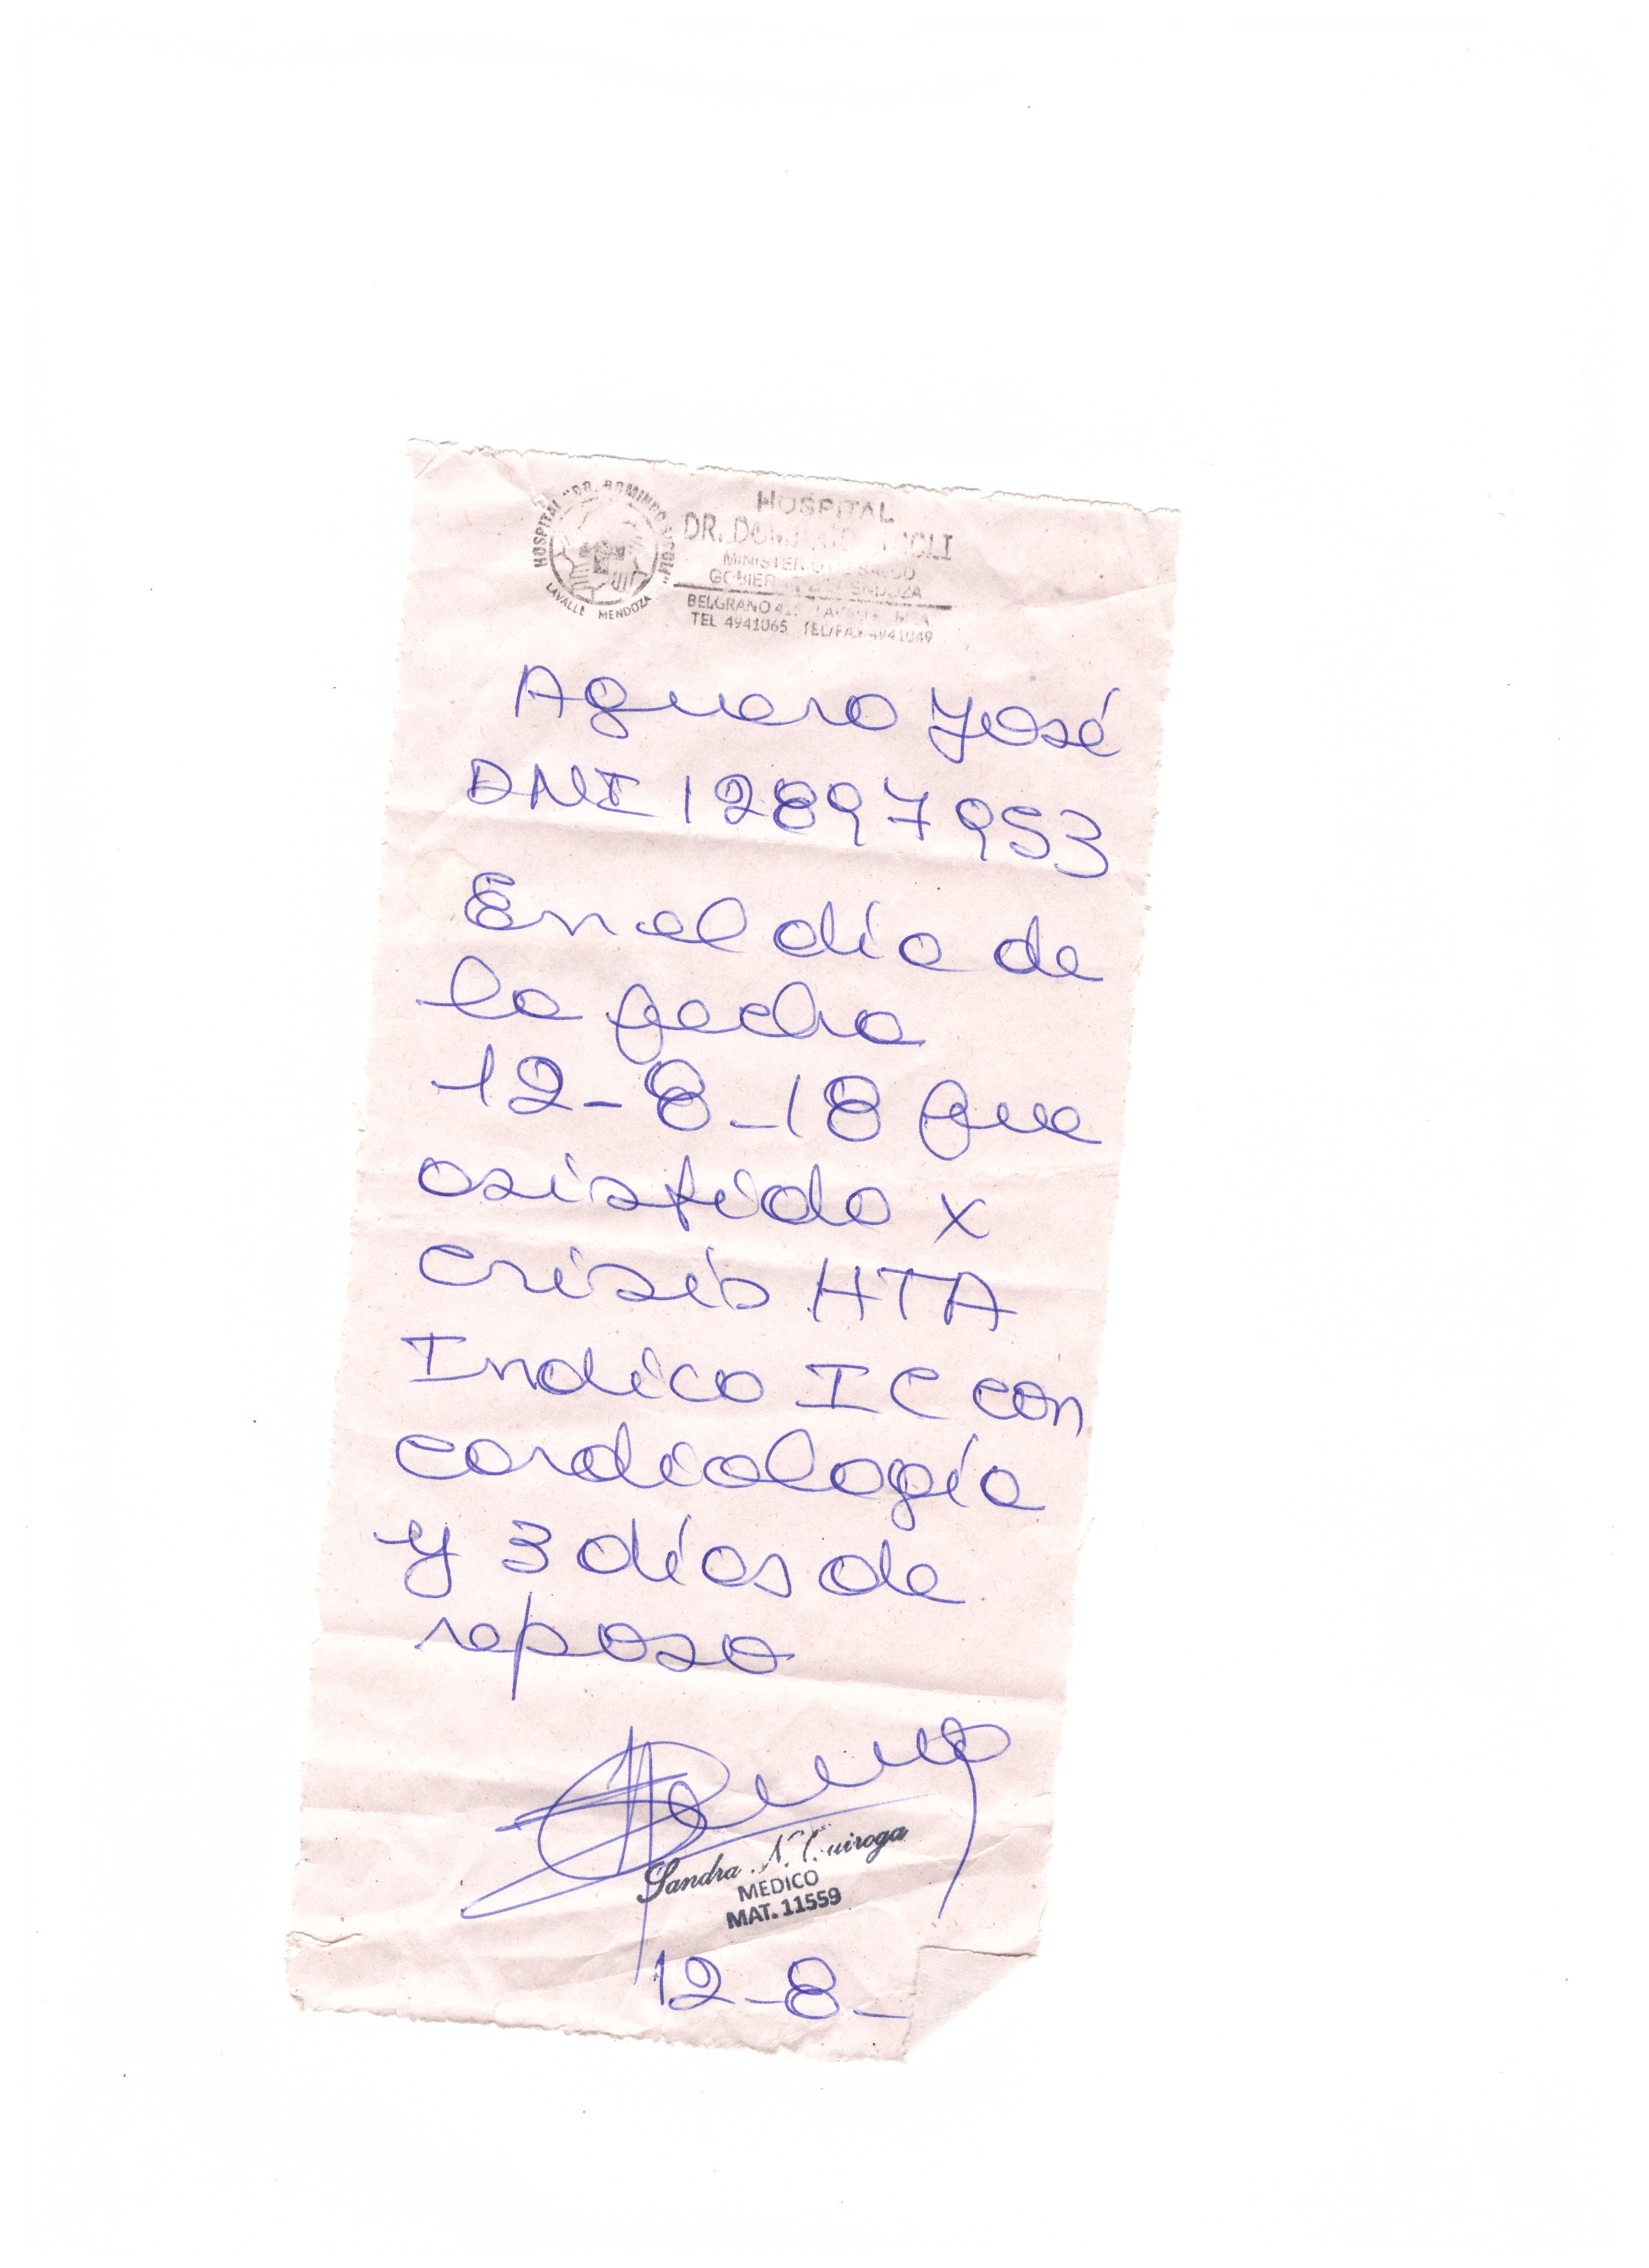 HOSPITAL "DR. DOMINGO SICOLI"
LAVALLE MENDOZA
HOSPITAL
DR. DOMINGO SICOLI
MINISTERIO DE SALUD
GOBIERNO DE MENDOZA
BELGRANO LAVALLE
TEL 4941065 TEL/FAX 4941049
Aguero José
DNI 12897953
En el día de
la fecha
12-8-18 fue
asistido x
crisis HTA
Indico IC con
cardiología
y 3 días de
reposo
Sandra N. Quiroga
MEDICO
MAT. 11559
12-8-